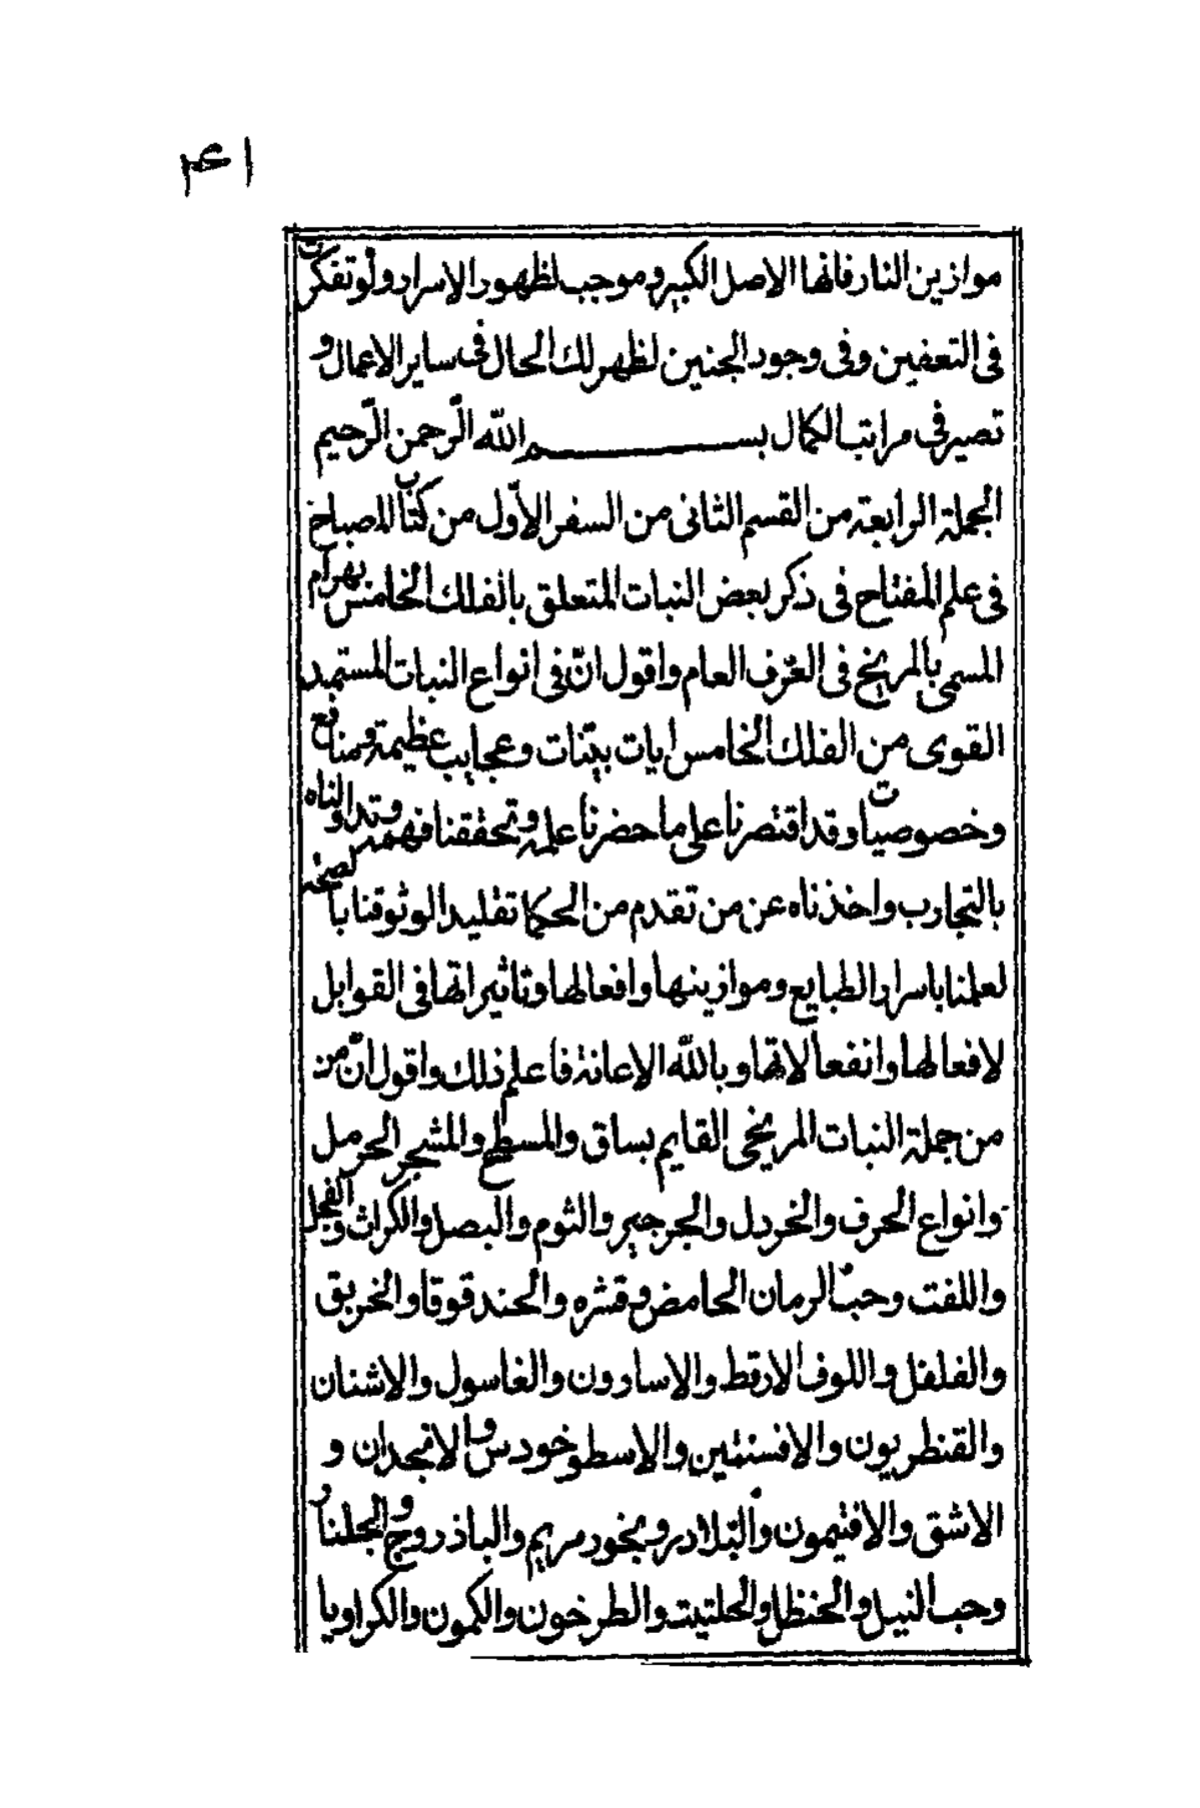 ۴۱
موازين النار فانها الاصل الكبير وموجب لظهور الاسرار ولو تفكرت
فى التعفين وفى وجود الجنين لظهر لك الحال فى ساير الاعمال و
تصير فى مراتب الكمال بسم الله الرّحمن الرّحيم
الجملة الرابعة من القسم الثانى من السفر الاوّل من كتاب المصباح
فى علم المفتاح فى ذكر بعض النبات المتعلق بالفلك الخامس بهرام
المسمى بالمريخ فى العُرف العام واقول انّ فى انواع النبات المستمد
القوى من الفلك الخامس ايات بيّنات وعجايب عظيمة ومنافع
وخصوصيات وقد اقتصرنا على ما حضرنا علمه وتحققنا فهمه وتداولناه
بالتجارب واخذناه عن من تقدم من الحكما تقليدا لوثوقنا بالصحة
لعلمنا باسرار الطبايع وموازينها وافعالها وتاثيراتها فى القوابل
لافعالها وانفعالاتها وبالله الاعانة فاعلم ذلك واقول انّ من
من جملة النبات المريخى القايم بساق والمسطح والمشجر الحرمل
وانواع الحرف والخردل والجرجير والثوم والبصل والكراث والفجل
واللفت وحبّ الرمان الحامض وقشره والحندقوقا والخربق
والفلفل واللوف الارقط والاسارون والغاسول والاشنان
والقنطريون والافسنتين والاسطوخودس والانجدان و
الاشق والافتيمون والبلادر وبخور مريم والباذروج والجلنار
وحب النيل والحنظل والحلتيت والطرخون والكمون والكراويا